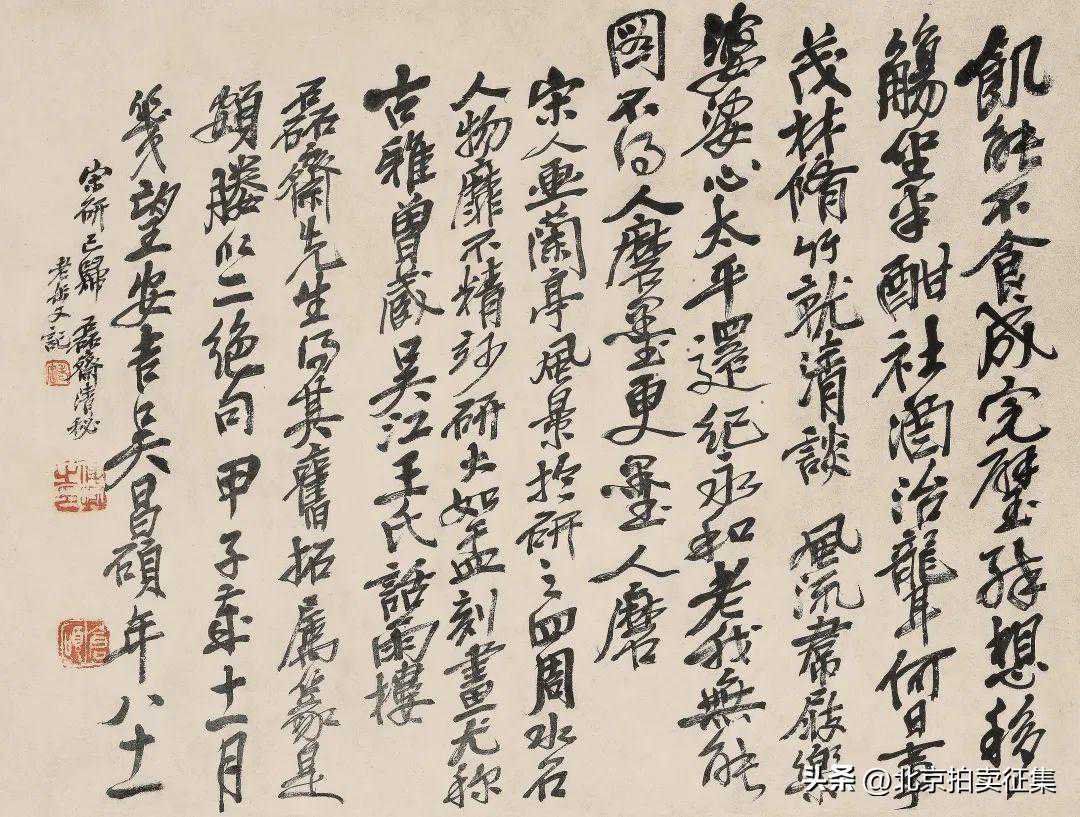 飢能不食成完璧殊想移
觴坐半酣社酒治聾何日事
茂林脩竹就清談 風流帬屐樂
婆娑心太平還紀永和老我無能
圖不得人磨墨更墨人磨
宋人画蘭亭風景於研之四周水石
人物靡不精妙研大如盂刻畫尤稱
古雅曾藏吳江王氏話雨樓
磊齋先生得其舊拓屬篆是
額媵以二絕句甲子歲十一月
幾望安吉吳昌碩年八十一
宋研已歸 磊齋清秘
老缶又記
头条 @北京拍卖征集